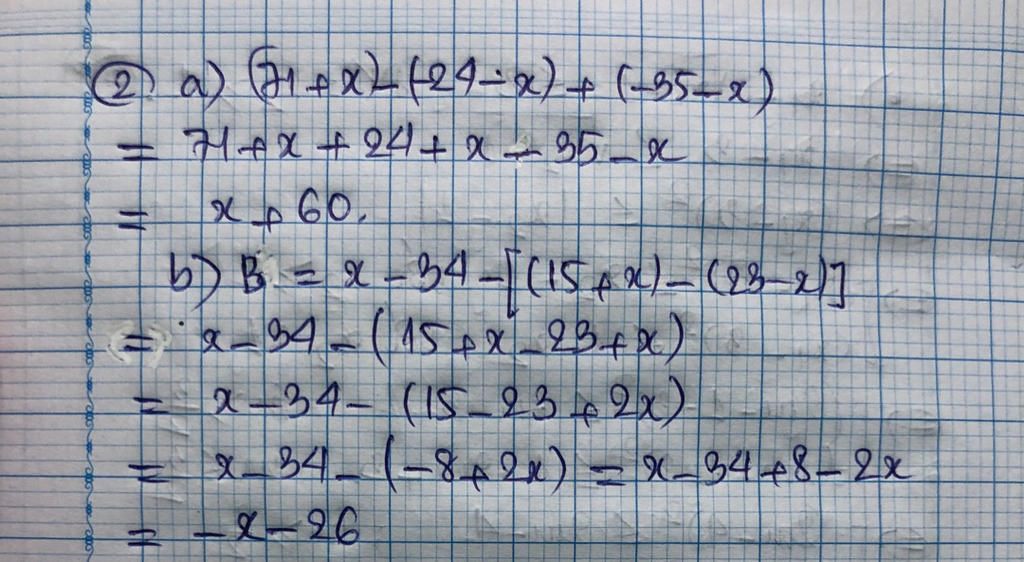 ② a) (71+x)-(-24-x)+(-35-x)
= 71+x+24+x-35-x
= x+60.
b) B = x-34-[(15+x)-(23-x)]
= x-34-(15+x-23+x)
= x-34-(15-23+2x)
= x-34-(-8+2x) = x-34+8-2x
= -x-26